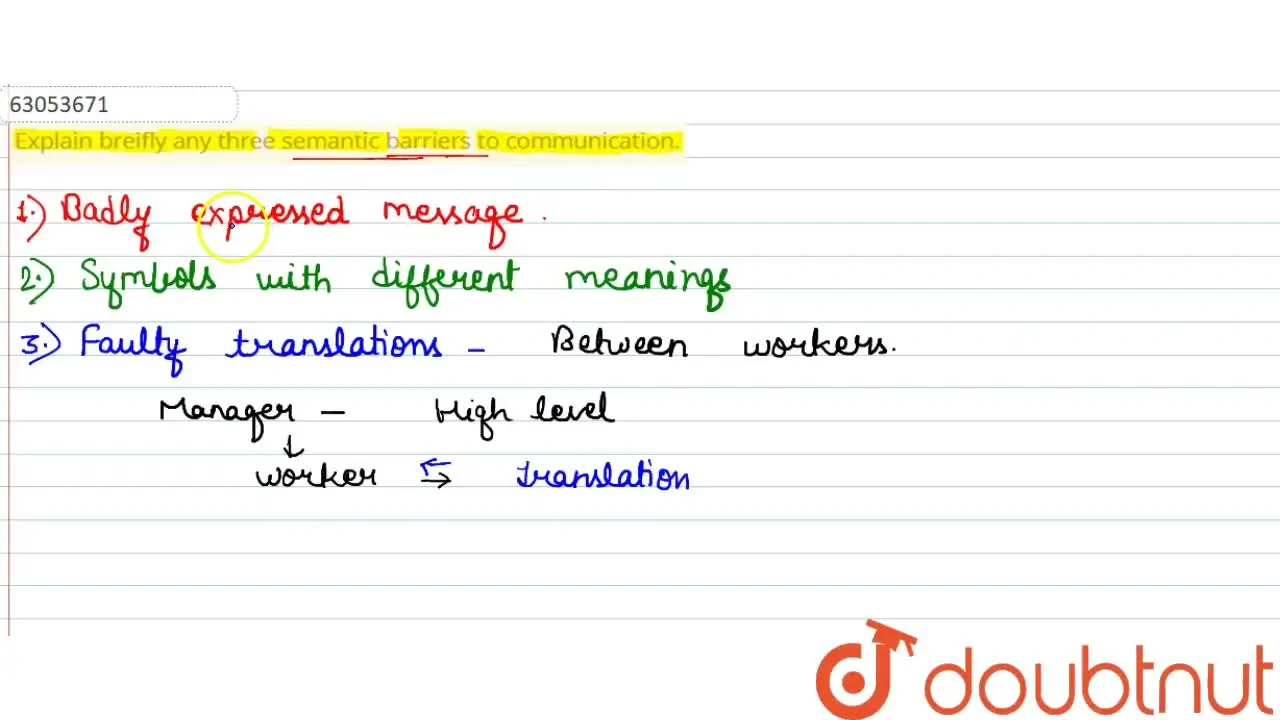 63053671
Explain breifly any three semantic barriers to communication.
1.) Badly expressed message.
2.) Symbols with different meanings
3.) Faulty translations - Between workers.
Manager - High level
↓
worker ⇆ translation
doubtnut